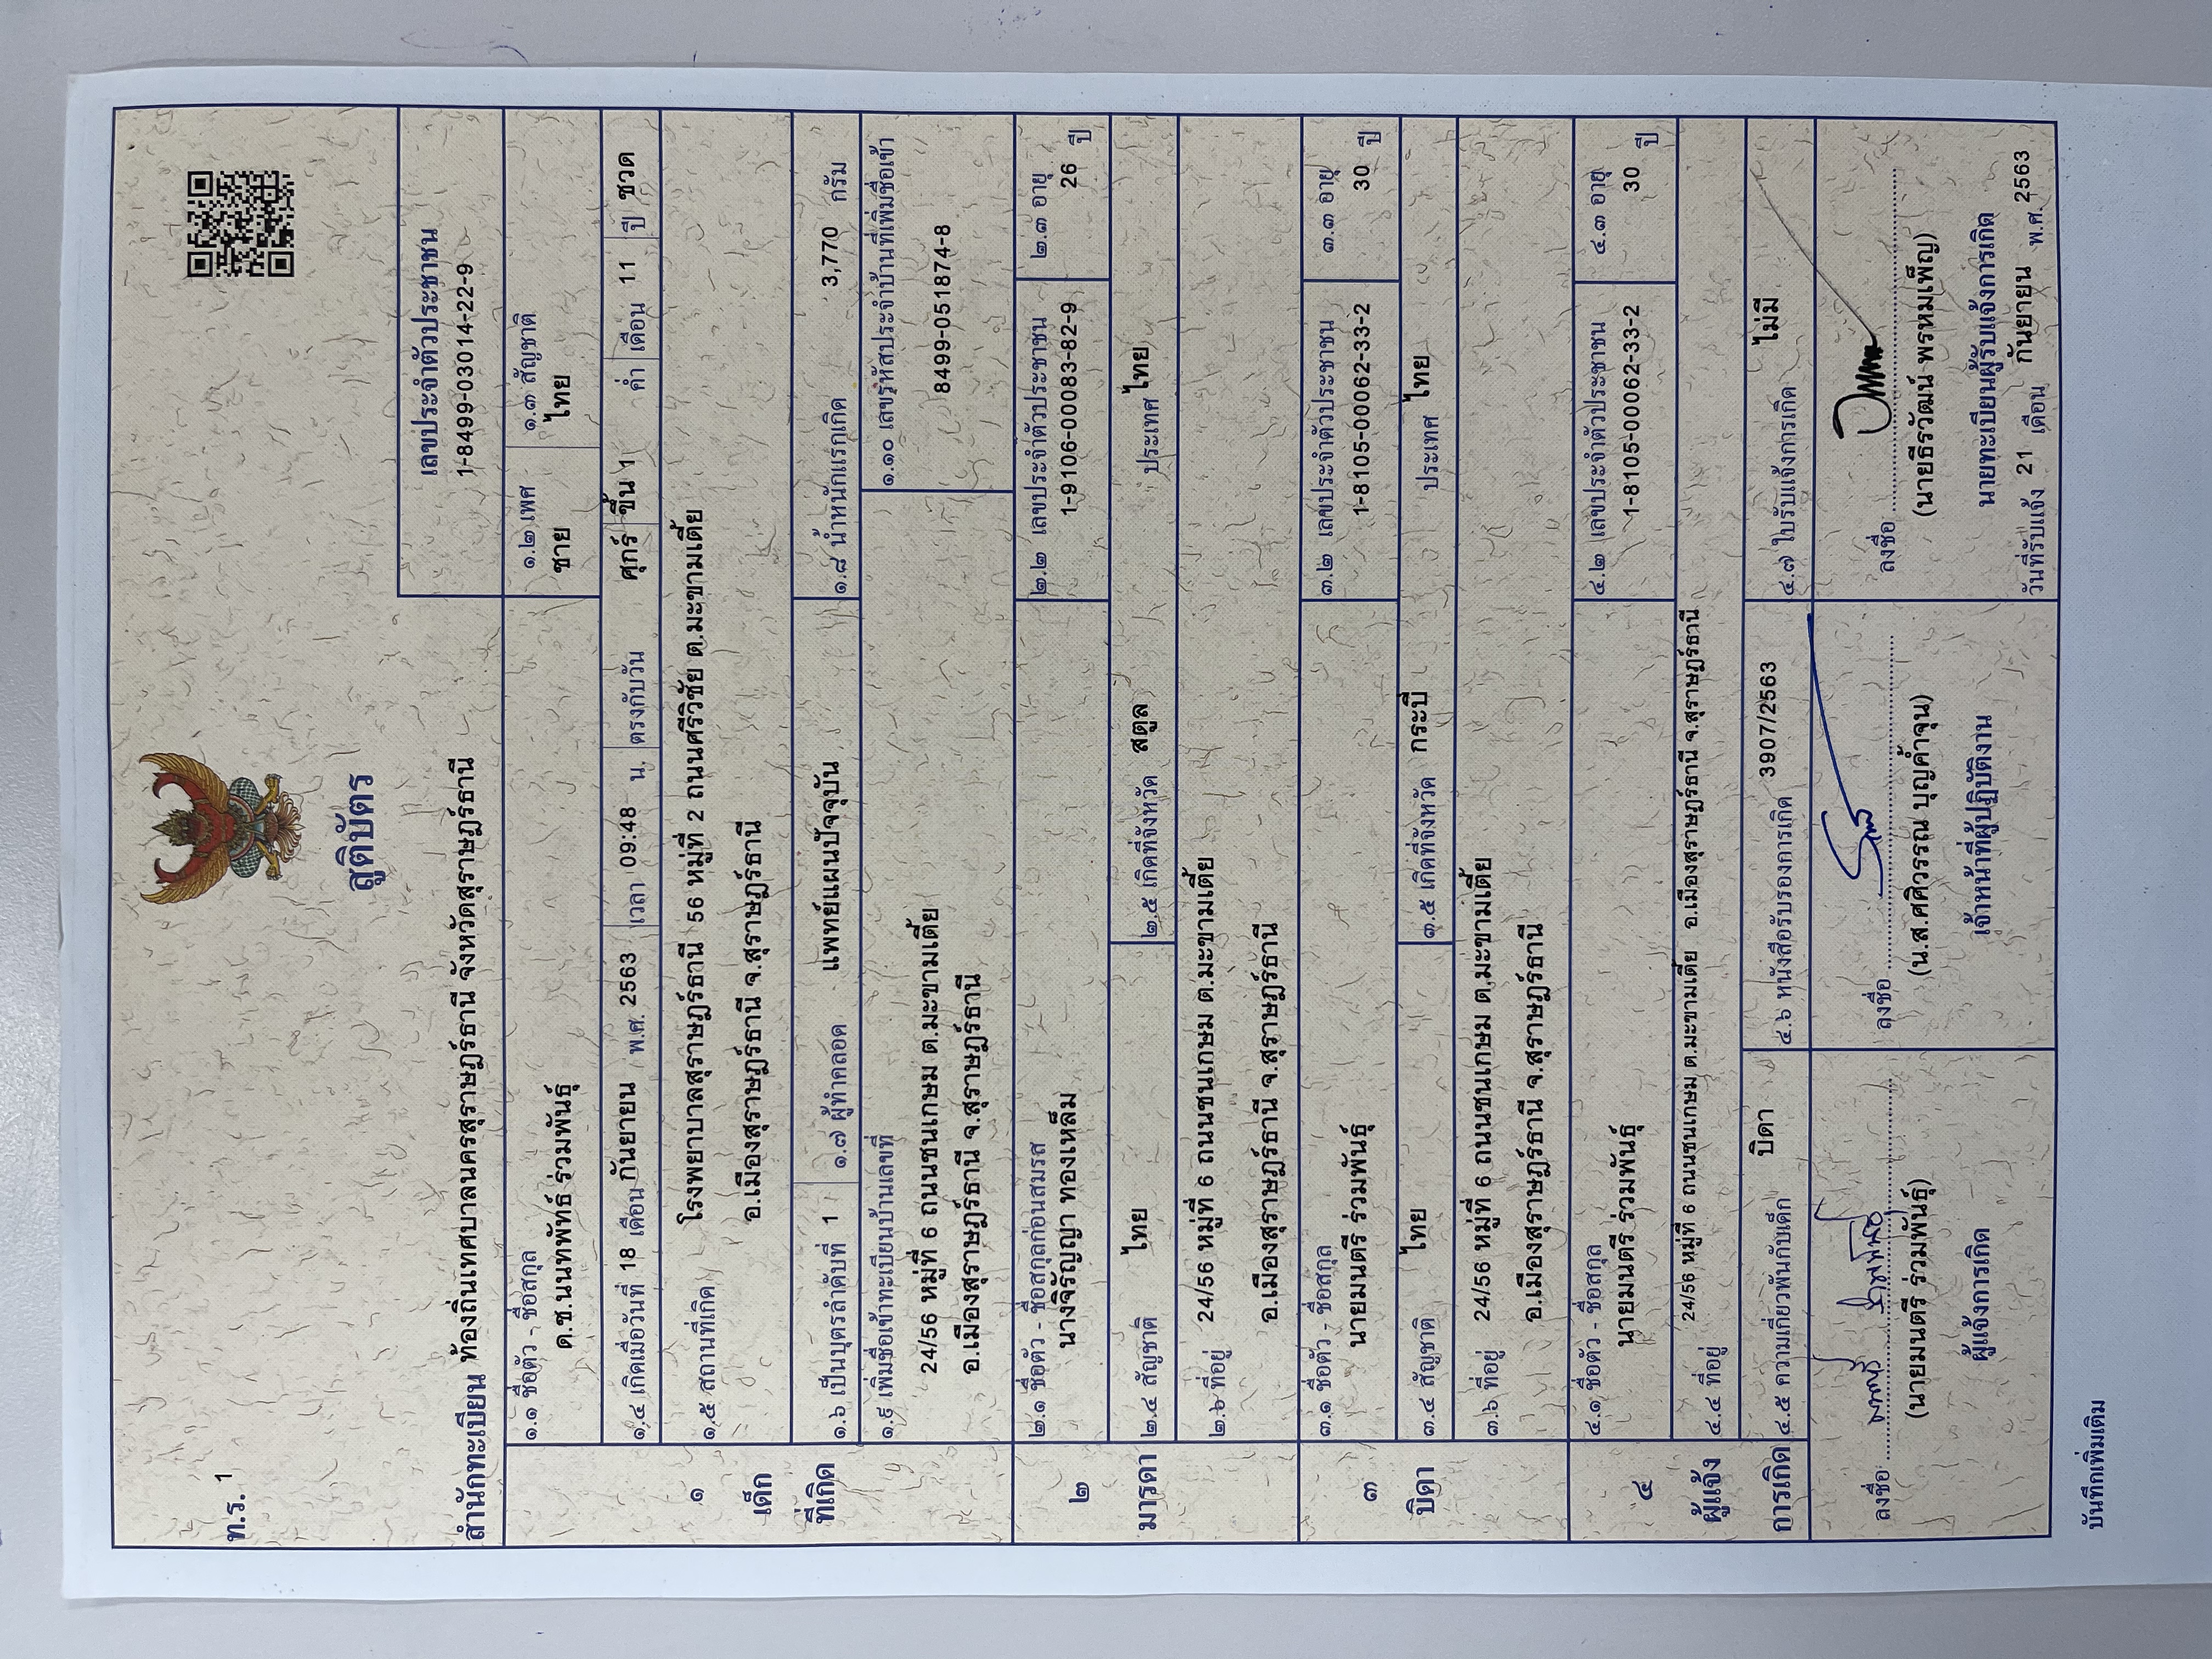 ท.ร. 1
สูติบัตร
เลขประจำตัวประชาชน
1-8499-03014-22-9
สำนักทะเบียน ท้องถิ่นเทศบาลนครสุราษฎร์ธานี จังหวัดสุราษฎร์ธานี
๑ เด็กที่เกิด
๑.๑ ชื่อตัว - ชื่อสกุล
ด.ช.นนทพัทธ์ ร่วมพันธุ์
๑.๒ เพศ
ชาย
๑.๓ สัญชาติ
ไทย
๑.๔ เกิดเมื่อวันที่ 18 เดือน กันยายน พ.ศ. 2563 เวลา 09:48 น. ตรงกับวัน ศุกร์ ขึ้น 1 ค่ำ เดือน 11 ปี ชวด
๑.๕ สถานที่เกิด โรงพยาบาลสุราษฎร์ธานี 56 หมู่ที่ 2 ถนนศรีวิชัย ต.มะขามเตี้ย
อ.เมืองสุราษฎร์ธานี จ.สุราษฎร์ธานี
๑.๖ เป็นบุตรลำดับที่ 1 ๑.๗ ผู้ทำคลอด แพทย์แผนปัจจุบัน ๑.๘ น้ำหนักแรกเกิด 3,770 กรัม
๑.๙ เพิ่มชื่อเข้าทะเบียนบ้านเลขที่
24/56 หมู่ที่ 6 ถนนชนเกษม ต.มะขามเตี้ย
อ.เมืองสุราษฎร์ธานี จ.สุราษฎร์ธานี
๑.๑๐ เลขรหัสประจำบ้านที่เพิ่มชื่อเข้า
8499-051874-8
๒ มารดา
๒.๑ ชื่อตัว - ชื่อสกุลก่อนสมรส
นางจิรัญญา ทองเหล็ม
๒.๒ เลขประจำตัวประชาชน
1-9106-00083-82-9
๒.๓ อายุ
26 ปี
๒.๔ สัญชาติ ไทย ๒.๕ เกิดที่จังหวัด สตูล ประเทศ ไทย
๒.๖ ที่อยู่ 24/56 หมู่ที่ 6 ถนนชนเกษม ต.มะขามเตี้ย
อ.เมืองสุราษฎร์ธานี จ.สุราษฎร์ธานี
๓ บิดา
๓.๑ ชื่อตัว - ชื่อสกุล
นายมนตรี ร่วมพันธุ์
๓.๒ เลขประจำตัวประชาชน
1-8105-00062-33-2
๓.๓ อายุ
30 ปี
๓.๔ สัญชาติ ไทย ๓.๕ เกิดที่จังหวัด กระบี่ ประเทศ ไทย
๓.๖ ที่อยู่ 24/56 หมู่ที่ 6 ถนนชนเกษม ต.มะขามเตี้ย
อ.เมืองสุราษฎร์ธานี จ.สุราษฎร์ธานี
๔ ผู้แจ้งการเกิด
๔.๑ ชื่อตัว - ชื่อสกุล
นายมนตรี ร่วมพันธุ์
๔.๒ เลขประจำตัวประชาชน
1-8105-00062-33-2
๔.๓ อายุ
30 ปี
๔.๔ ที่อยู่ 24/56 หมู่ที่ 6 ถนนชนเกษม ต.มะขามเตี้ย อ.เมืองสุราษฎร์ธานี จ.สุราษฎร์ธานี
๔.๕ ความเกี่ยวพันกับเด็ก บิดา ๔.๖ หนังสือรับรองการเกิด 3907/2563 ๔.๗ ใบรับแจ้งการเกิด ไม่มี
ลงชื่อ มนตรี ร่วมพันธุ์
(นายมนตรี ร่วมพันธุ์)
ผู้แจ้งการเกิด
ลงชื่อ
(น.ส.ศศิวรรณ บุญค้ำจุน)
เจ้าหน้าที่ผู้ปฏิบัติงาน
ลงชื่อ
(นายธีรวัฒน์ พรหมเพ็ญ)
นายทะเบียนผู้รับแจ้งการเกิด
วันที่รับแจ้ง 21 เดือน กันยายน พ.ศ. 2563
บันทึกเพิ่มเติม